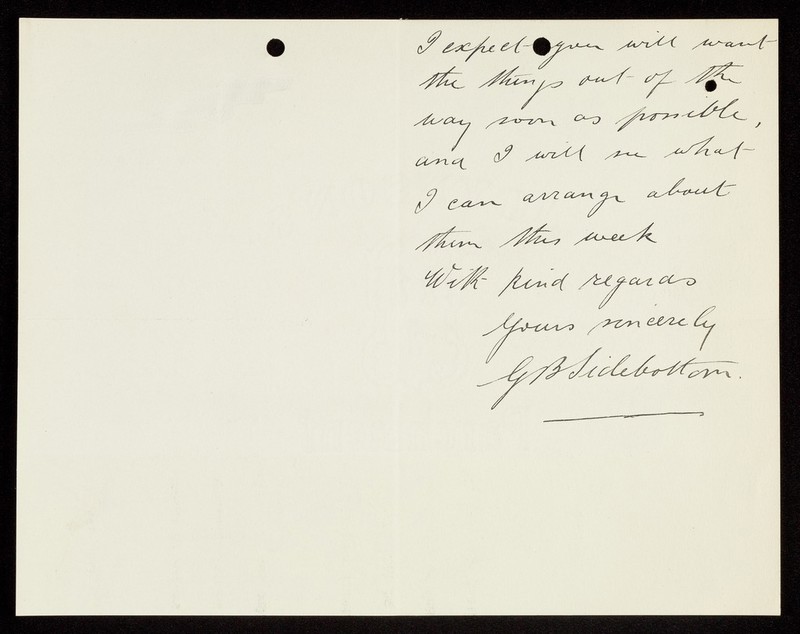 I expect you will want
the things out of the
way soon as possible,
and I will see what
I can arrange about
them this week
With kind regards
Yours sincerely
G B Sidebottom.